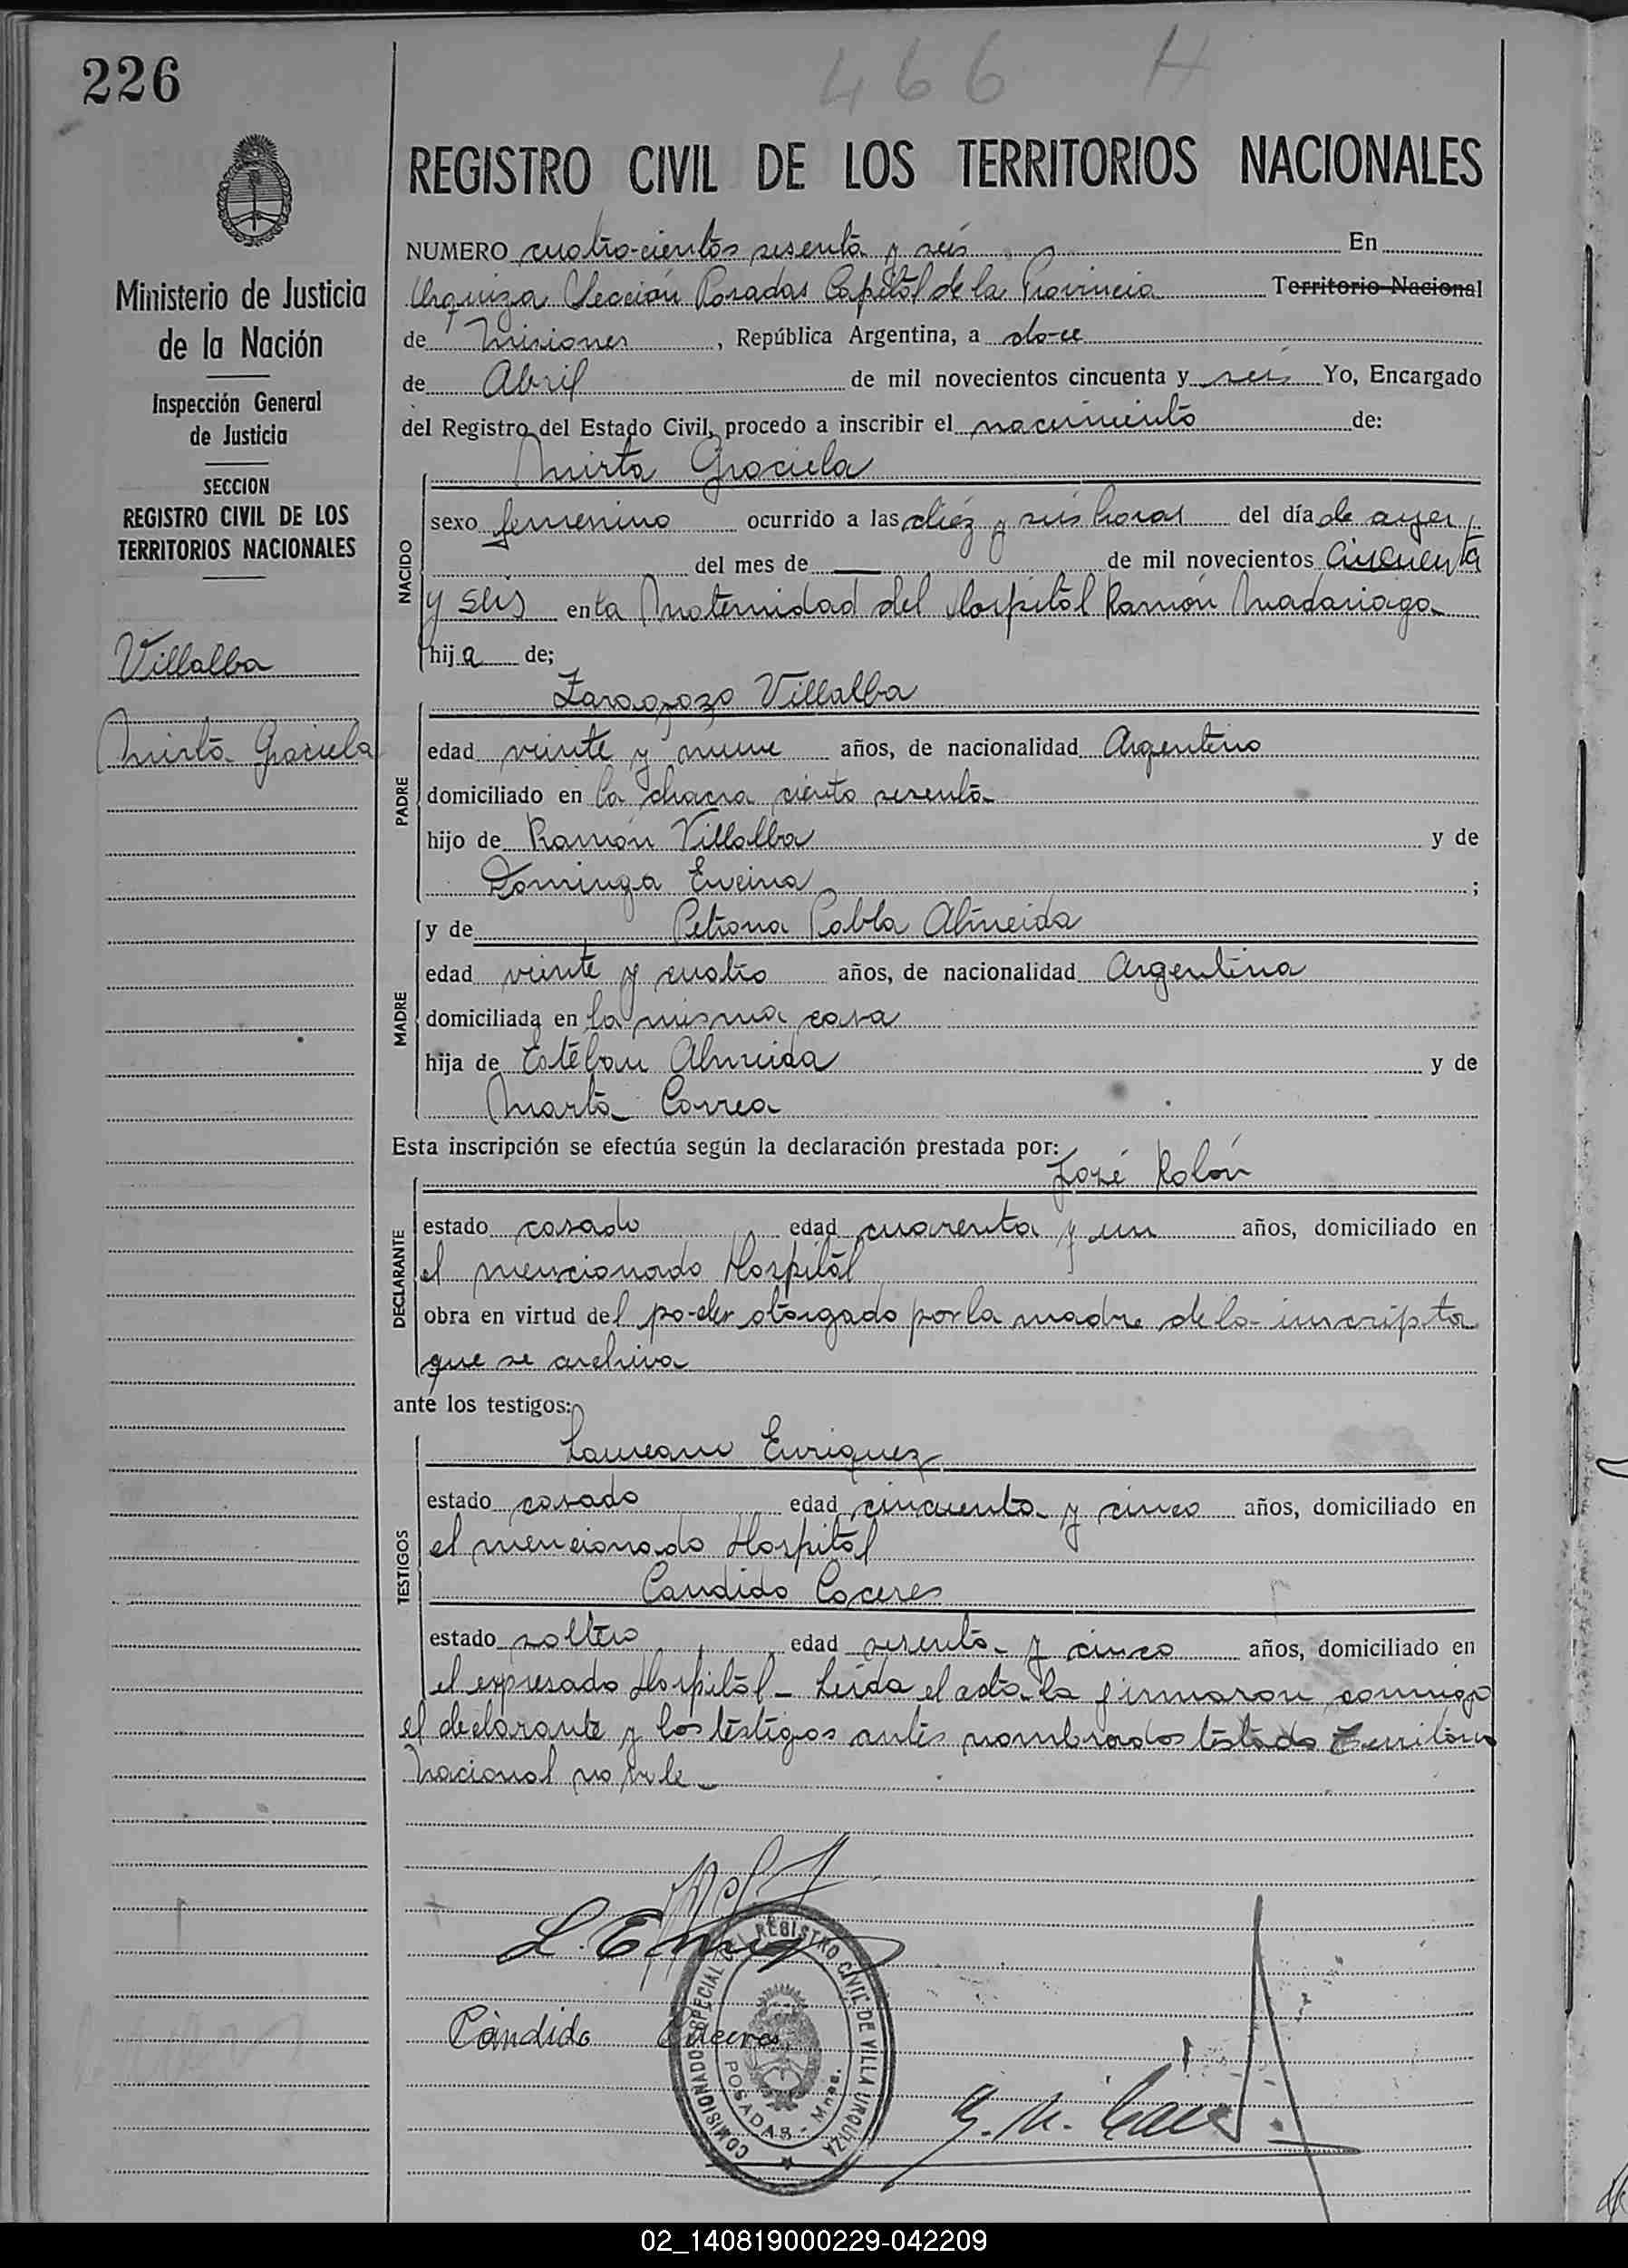 226
466 H
REGISTRO CIVIL DE LOS TERRITORIOS NACIONALES
Ministerio de Justicia
de la Nación
Inspección General
de Justicia
SECCION
REGISTRO CIVIL DE LOS
TERRITORIOS NACIONALES
Villalba
Mirta Graciela
NUMERO cuatro-cientos sesenta y seis En
Urquiza Sección Posadas Capital de la Provincia Territorio Nacional
de Misiones, República Argentina, a do-ce
de Abril de mil novecientos cincuenta y seis Yo, Encargado
del Registro del Estado Civil, procedo a inscribir el nacimiento de:
NACIDO
Mirta Graciela
sexo femenino ocurrido a las diez y seis horas del día de ayer
del mes de — de mil novecientos cincuenta
y seis en la Maternidad del Hospital Ramón Madariaga
hija de;
PADRE
Zaragozo Villalba
edad veinte y nueve años, de nacionalidad Argentino
domiciliado en la chacra ciento sesenta
hijo de Ramón Villalba y de
Dominga ;
MADRE
y de Petrona Pabla Almeida
edad veinte y cuatro años, de nacionalidad Argentina
domiciliada en la misma casa
hija de Estéban Almeida y de
Marta Correa
Esta inscripción se efectúa según la declaración prestada por:
DECLARANTE
José Rolón
estado casado edad cuarenta y un años, domiciliado en
el mencionado Hospital
obra en virtud del po-der otorgado por la madre de la inscripta
que se archiva
ante los testigos:
TESTIGOS
Laureano Enriquez
estado casado edad cincuenta y cinco años, domiciliado en
el mencionado Hospital
Candido Caceres
estado soltero edad sesenta y cinco años, domiciliado en
el expresado Hospital - Leída el acta la firmaron conmigo
el declarante y los testigos antes nombrados testado Territorio
Nacional no vale
Cándido Caceres
COMISIONADO ESPECIAL DEL REGISTRO CIVIL DE VILLA URQUIZA
POSADAS - Mnes.
02_140819000229-042209